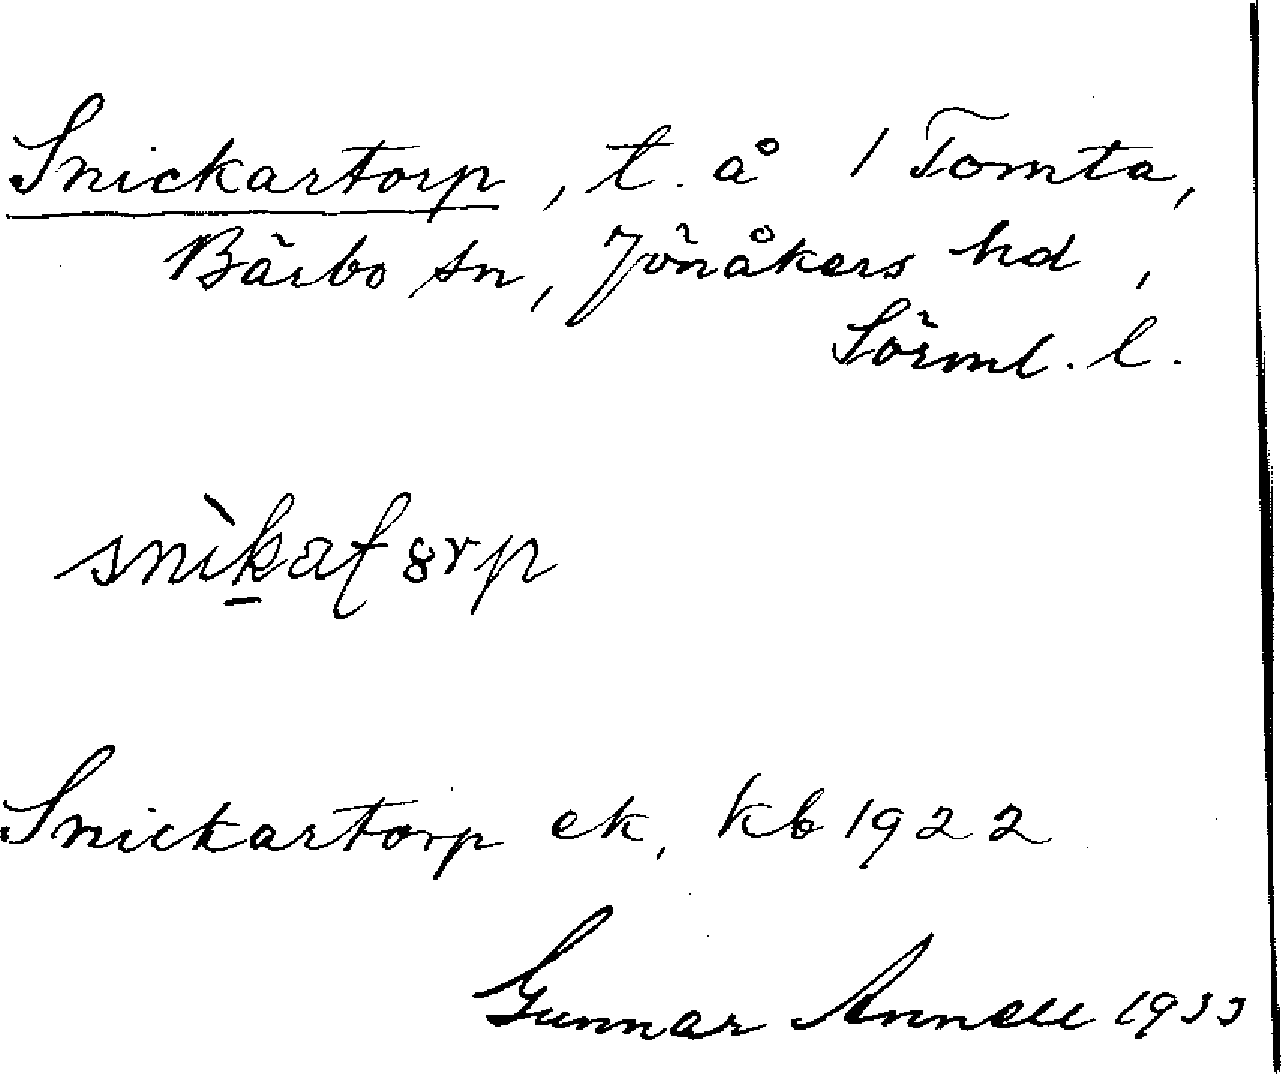 Snickartorp, t. å 1 Tomta,
Bärbo sn, Jönåkers hd,
Sörml. l.
Snickartorp ek, kb 1922
Gunnar Annell 1933